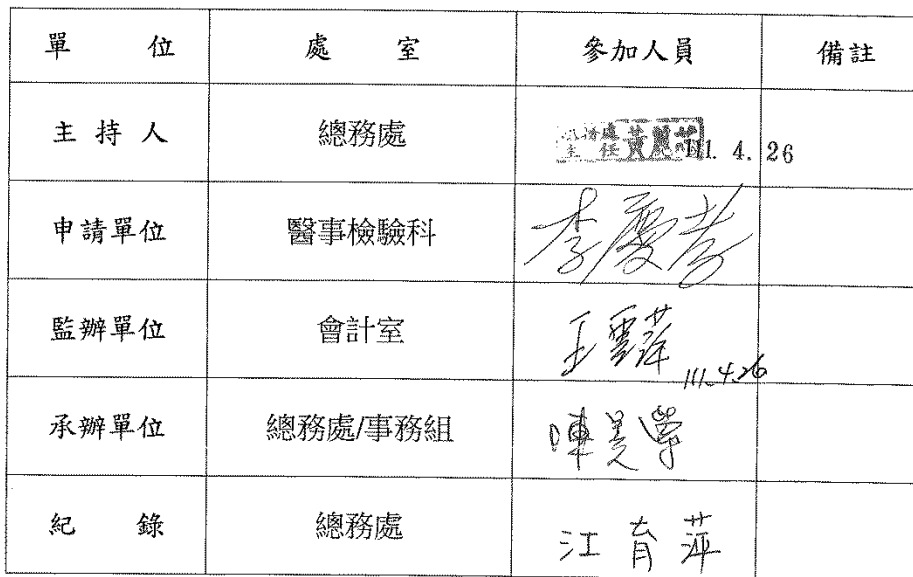 單 位 處 室 參加人員 備註
主 持 人 總務處 總務處
主 任 黃麗 111. 4. 26
申請單位 醫事檢驗科 李慶
監辦單位 會計室 王雲萍
111.4.26
承辦單位 總務處/事務組 陳
紀 錄 總務處 江育萍